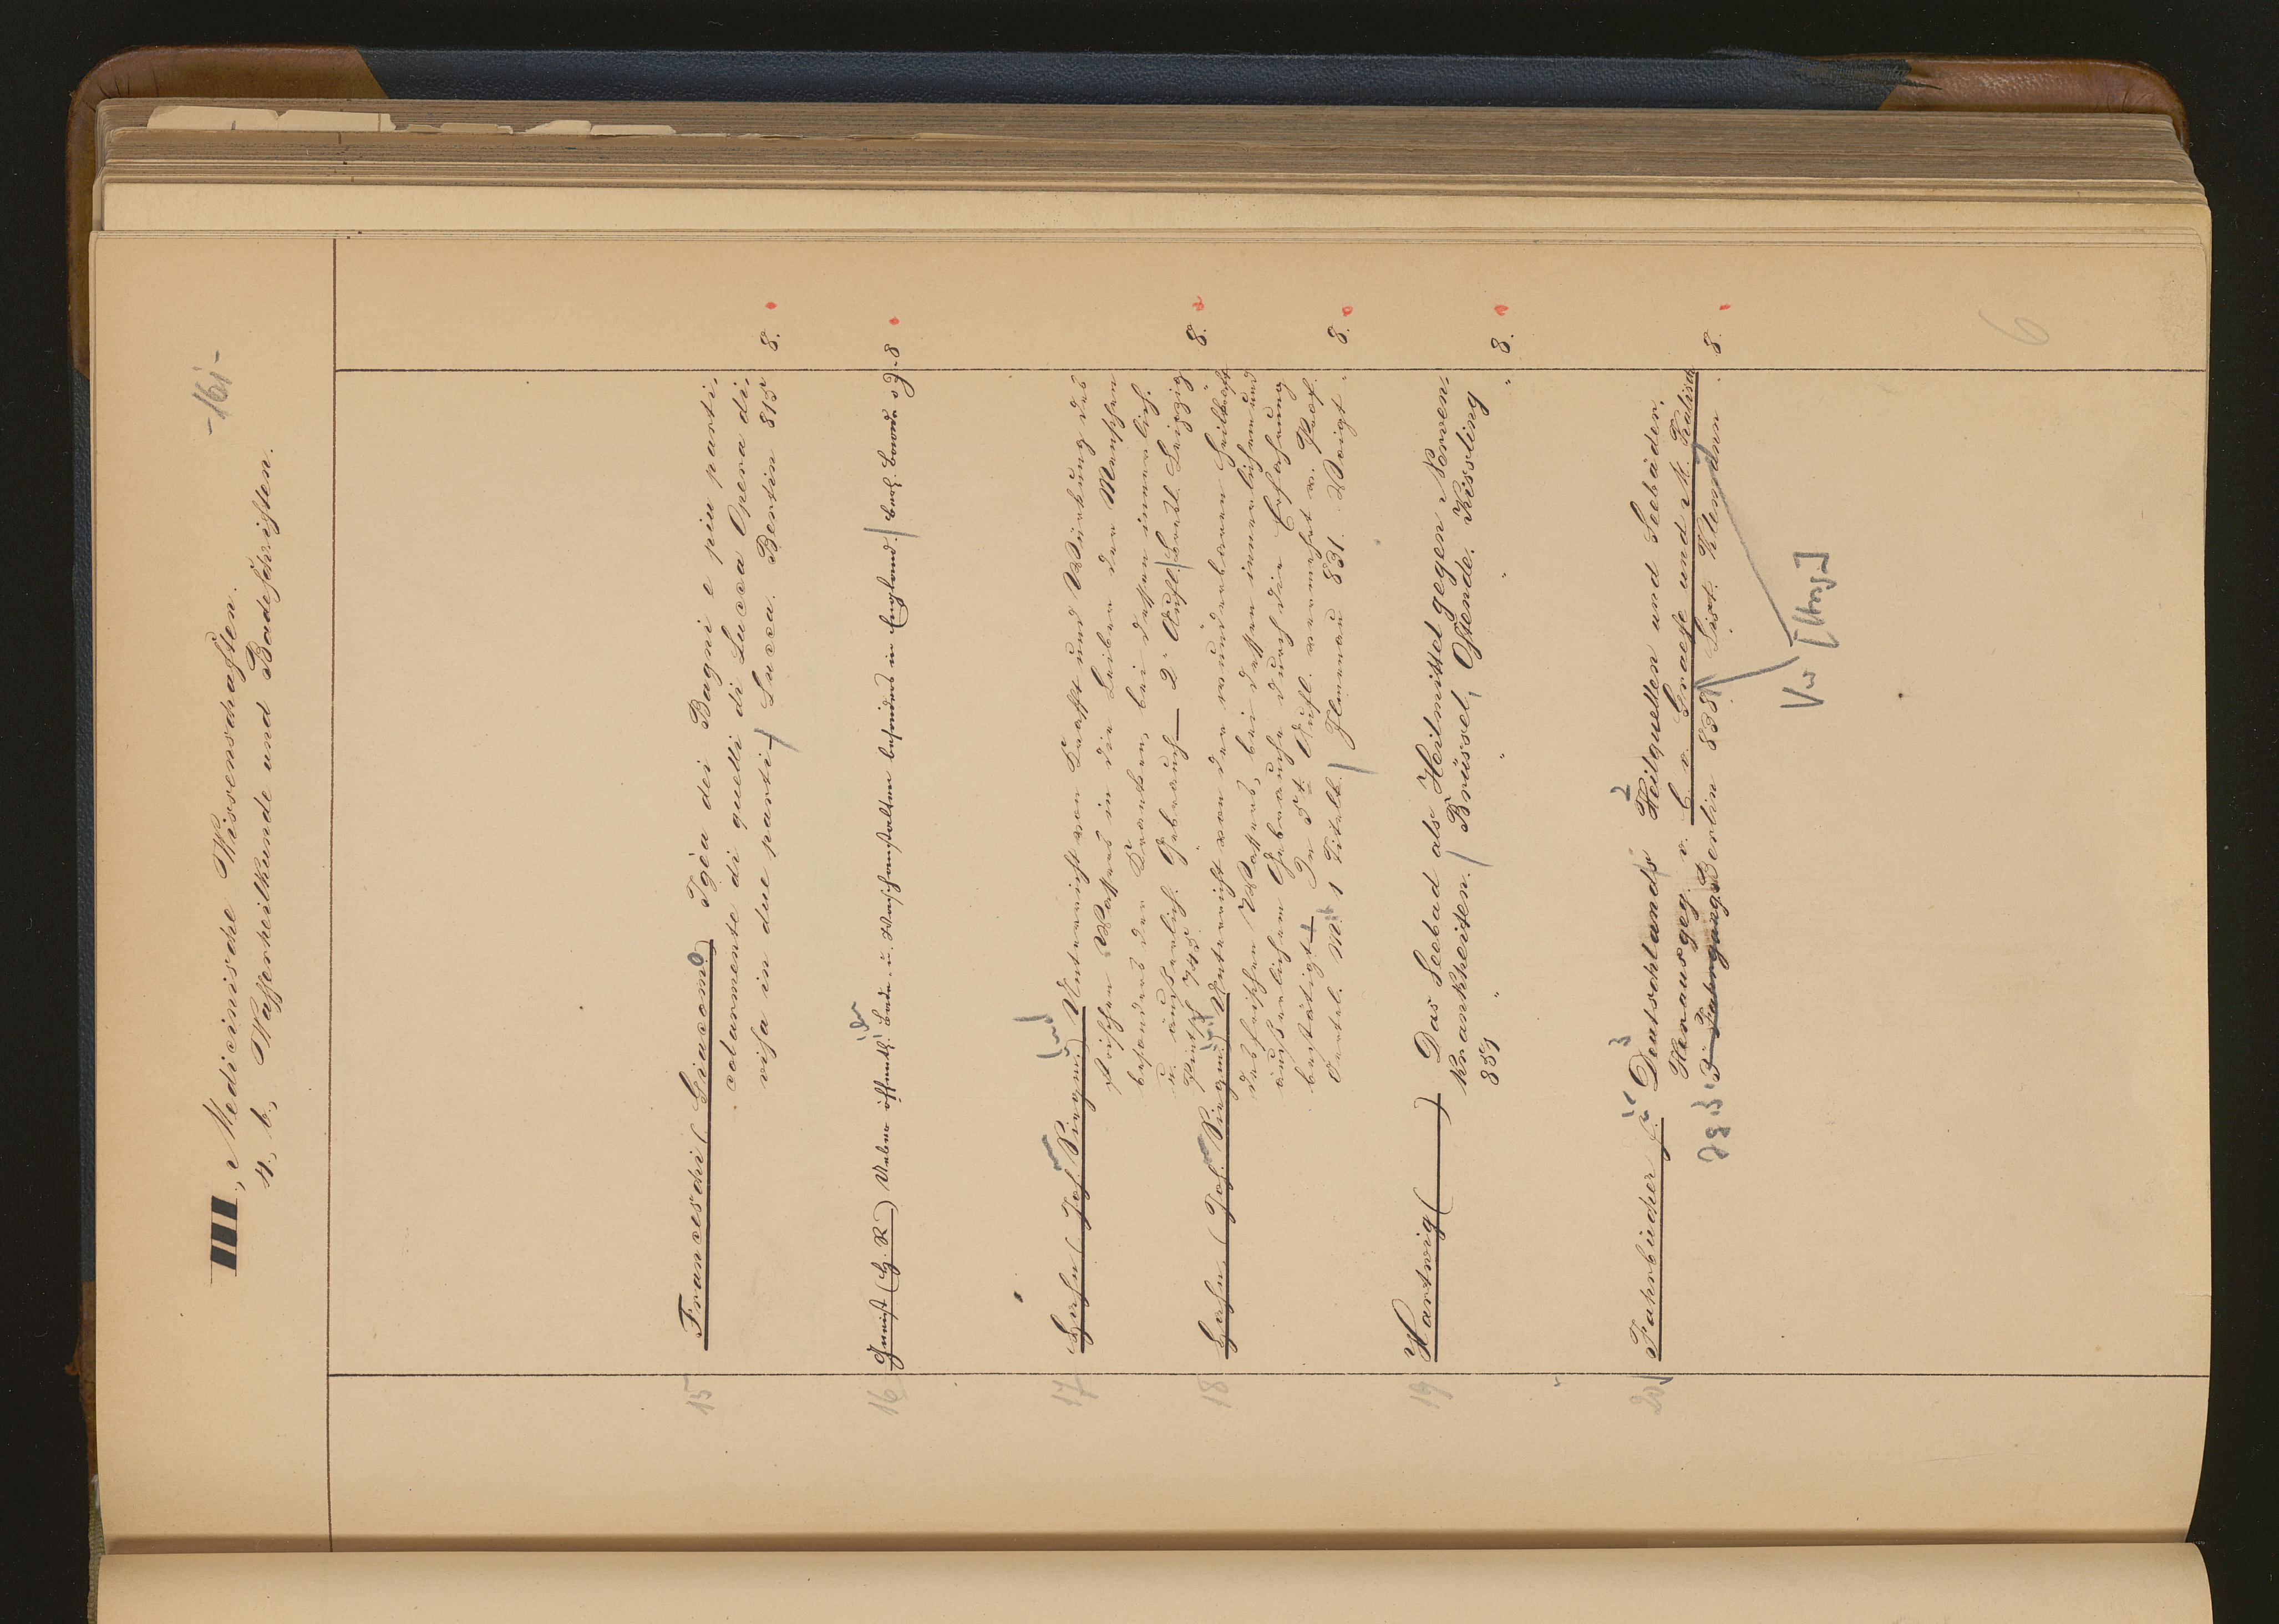 -161-
III., Medicinische Wissenschaften.
4. b., Wasserheilkunde und Badeschriften.
15 Franceschi (Giacomo) Igéa dei Bagni e piu parti-
colarmente di quelli di Lucca Opera di
visa in due parti / Lucca. Bertin 815 8.
16 (H. R.) Ueber öffentl. Bade- u. Waschanstalten besonders in England. / 8
17 Hahn (Joh. Siegm.) Unterricht von Krafft und Würkung des
frischen Wassers in die Leiber der Menschen
besonders der Kranken, bei dessen innerlich.
u. äusserlich. Gebrauch 2. Aufl. / Leipzig
745. 8.
18 Hahn (Joh. Siegm.) Unterricht von der wunderbaren Heilkraft
des frischen Wassers, bei dessen innerlichem und
äusserlichem Gebrauche durch die Erfahrung
bestätigt. In 5t. Aufl. vermehrt v. Prof.
Oertel. M. 1 Titelk. / Ilmenau 831. Voigt. 8.
19 Hartwig ( ) Das Seebad als Heilmittel gegen Nerven-
Krankheiten. / Brüssel, Ostende. Kissling
859 " " " " 8.
20 Jahrbücher f. Deutschlands Heilquellen und Seebäder.
Herausgeg. v. C. v. Graefe und M. Kalisch
Jg. 3. 3. Jahrgang Berlin 838 List. Klemann. 8.
V. [Hrsg.]
6